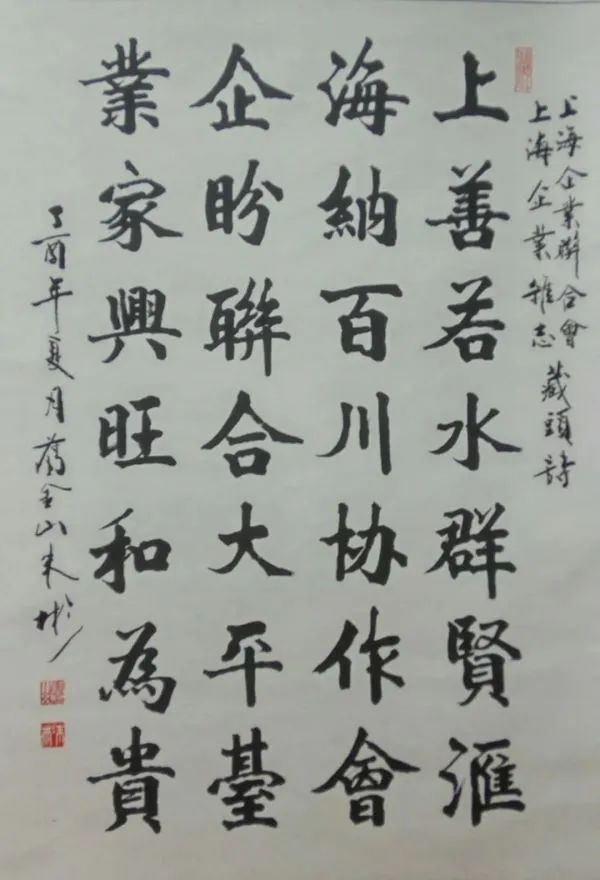 上海企業聯合會
上海企業雜志 藏頭詩
上善若水群賢滙
海納百川协作會
企盼聯合大平臺
業家興旺和為貴
丁酉年夏月 金山朱彬